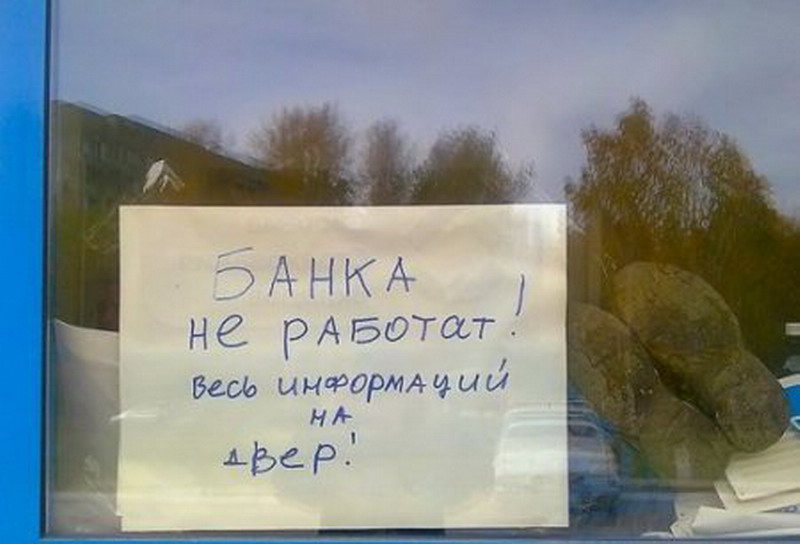 БАНКА
не работат!
весь информаций
на
двер!